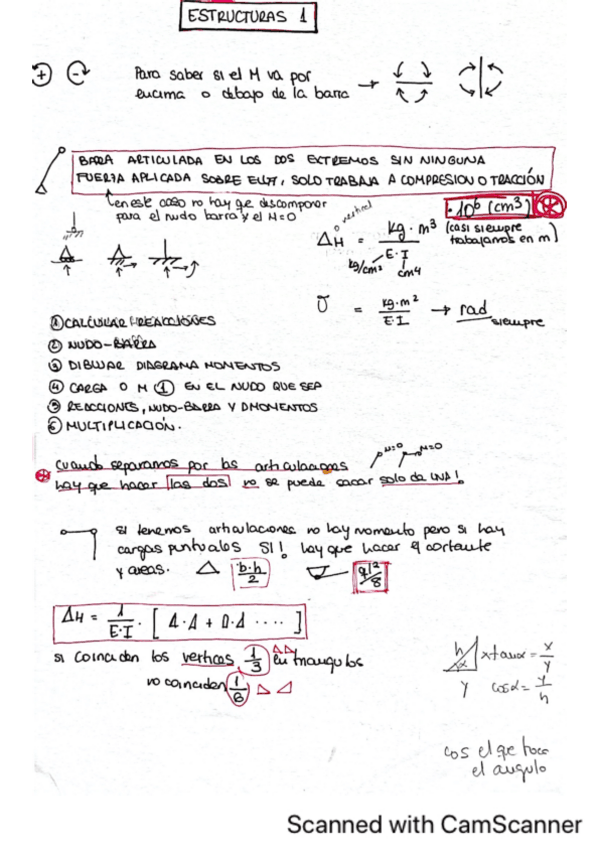 ESTRUCTURAS 1
Para saber si el M va por
encima o debajo de la barra →
BARRA ARTICULADA EN LOS DOS EXTREMOS SIN NINGUNA
FUERZA APLICADA SOBRE ELLA, SOLO TRABAJA A COMPRESION O TRACCIÓN
en este caso no hay que descomponer
para el nudo barra y el M=0
vertical
ΔH = kg·m³ / E·I
kg/cm² cm4
·10⁶ (cm³)
(casi siempre
trabajamos en m)
= kg·m² / E·I → rad
siempre
① CALCULAR REACCIONES
② NUDO-BARRA
③ DIBUJAR DIAGRAMA MOMENTOS
④ CARGA O M ① EN EL NUDO QUE SEA
⑤ REACCIONES, NUDO-BARRA Y DMOMENTOS
⑥ MULTIPLICACIÓN.
cuando separamos por las articulaciones M=0 M=0
hay que hacer las dos no se puede sacar solo da UNA!
si tenemos articulaciones no hay momento pero si hay
cargas puntuales SI! hay que hacer el cortante
y areas. b·h/2 ql²/8
ΔH = 1/E·I · [ Δ·Δ + D·Δ ···· ]
si coinciden los vertices 1/3 en triangulos
no coinciden 1/6
h α x y
tanα = x/y
cosα = y/h
cos el que hace
el angulo
Scanned with CamScanner